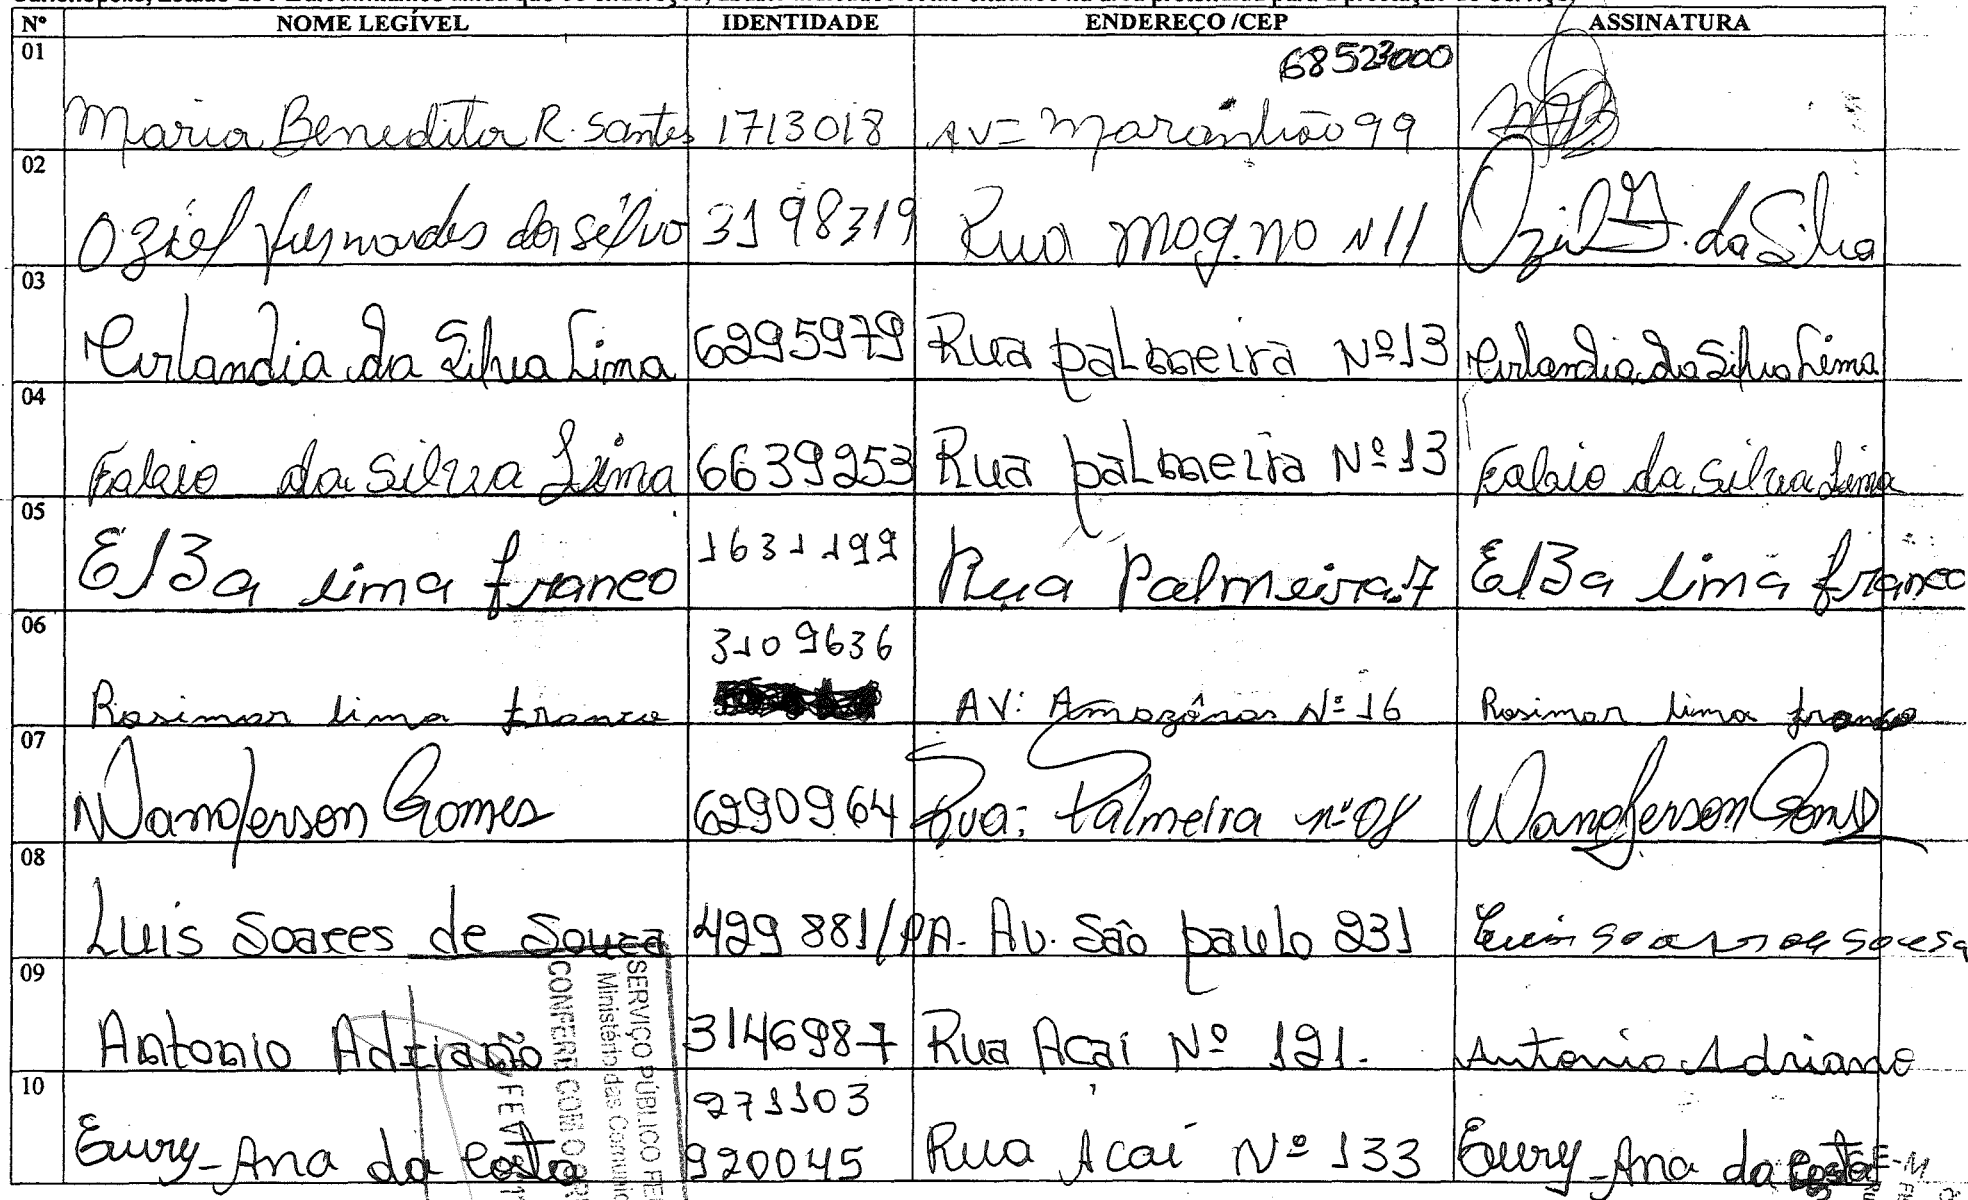 Nº NOME LEGÍVEL IDENTIDADE ENDEREÇO /CEP ASSINATURA
01 68523000
Maria Benedita R. Santos 1713018 AV= Maranhão 99
02
Oziel Fernandes da Silva 3198319 Rua Mogno N 11 Oziel F. da Silva
03
Cirlandia da Silva Lima 6295979 Rua palmeira Nº 13 Cirlandia da Silva Lima
04
Fabio da Silva Lima 6639253 Rua palmeira Nº 13 Fabio da Silva Lima
05
Elza lima franco 1631199 Rua Palmeira.7 Elza lima franco
06 3109636
Rosimar lima franco AV: Amazônas Nº 16 Rosimar lima franco
07
Wanderson Gomes 6290964 Rua: Palmeira nº 08 Wanderson Gomes
08
Luis Soares de Souza 429 881/PA. Av. São paulo 231 Luis Soares de Sousa
09
Antonio Adriano 3146987 Rua Acaí Nº 121. Antonio Adriano
10 271103
Eury-Ana da Costa 920045 Rua Acaí Nº 133 Eury-Ana da Costa
SERVIÇO PÚBLICO FE
Ministério das Comunic
CONFERE COM O ORI
FEV